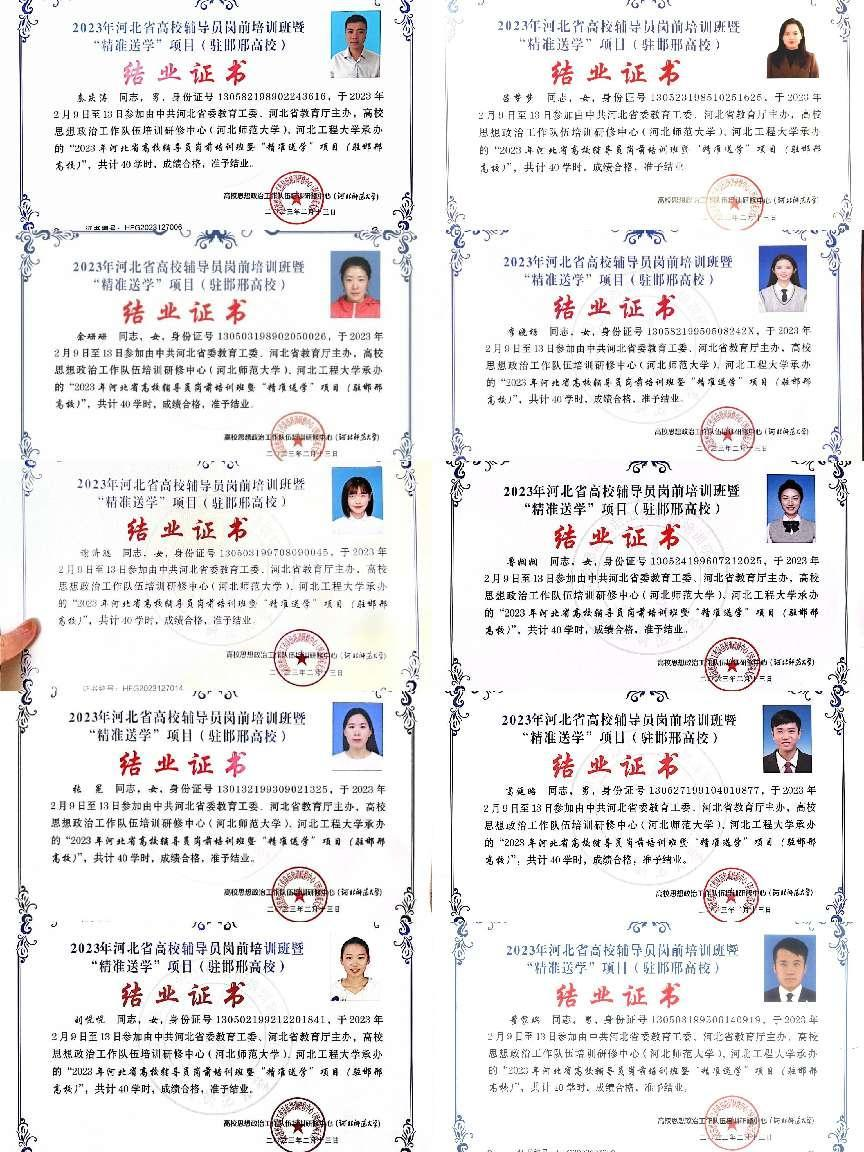 2023年河北省高校辅导员岗前培训班暨
“精准送学”项目（驻邯邢高校）
结业证书
秦庆涛 同志，男，身份证号130582198902243616，于2023年
2月9日至13日参加由中共河北省委教育工委、河北省教育厅主办，高校
思想政治工作队伍培训研修中心（河北师范大学）、河北工程大学承办
的“2023年河北省高校辅导员岗前培训班暨“精准送学”项目（驻邯邢
高校）”，共计40学时，成绩合格，准予结业。
高校思想政治工作队伍培训研修中心（河北师范大学）
二〇二三年二月十三日
证书编号：HFG2023127006
2023年河北省高校辅导员岗前培训班暨
“精准送学”项目（驻邯邢高校）
结业证书
吕梦梦 同志，女，身份证号130523198510251625，于2023年
2月9日至13日参加由中共河北省委教育工委、河北省教育厅主办，高校
思想政治工作队伍培训研修中心（河北师范大学）、河北工程大学承办
的“2023年河北省高校辅导员岗前培训班暨“精准送学”项目（驻邯邢
高校）”，共计40学时，成绩合格，准予结业。
高校思想政治工作队伍培训研修中心（河北师范大学）
二〇二三年二月十三日
2023年河北省高校辅导员岗前培训班暨
“精准送学”项目（驻邯邢高校）
结业证书
金珊珊 同志，女，身份证号130503198902050026，于2023年
2月9日至13日参加由中共河北省委教育工委、河北省教育厅主办，高校
思想政治工作队伍培训研修中心（河北师范大学）、河北工程大学承办
的“2023年河北省高校辅导员岗前培训班暨“精准送学”项目（驻邯邢
高校）”，共计40学时，成绩合格，准予结业。
高校思想政治工作队伍培训研修中心（河北师范大学）
二〇二三年二月十三日
2023年河北省高校辅导员岗前培训班暨
“精准送学”项目（驻邯邢高校）
结业证书
同志，女，身份证号13058219950508242X，于2023年
2月9日至13日参加由中共河北省委教育工委、河北省教育厅主办，高校
思想政治工作队伍培训研修中心（河北师范大学）、河北工程大学承办
的“2023年河北省高校辅导员岗前培训班暨“精准送学”项目（驻邯邢
高校）”，共计40学时，成绩合格，准予结业。
高校思想政治工作队伍培训研修中心（河北师范大学）
二〇二三年二月十三日
2023年河北省高校辅导员岗前培训班暨
“精准送学”项目（驻邯邢高校）
结业证书
同志，女，身份证号130503199708090045，于2023年
2月9日至13日参加由中共河北省委教育工委、河北省教育厅主办，高校
思想政治工作队伍培训研修中心（河北师范大学）、河北工程大学承办
的“2023年河北省高校辅导员岗前培训班暨“精准送学”项目（驻邯邢
高校）”，共计40学时，成绩合格，准予结业。
高校思想政治工作队伍培训研修中心（河北师范大学）
二〇二三年二月十三日
证书编号：HFG2023127014
2023年河北省高校辅导员岗前培训班暨
“精准送学”项目（驻邯邢高校）
结业证书
同志，女，身份证号130524199607212025，于2023年
2月9日至13日参加由中共河北省委教育工委、河北省教育厅主办，高校
思想政治工作队伍培训研修中心（河北师范大学）、河北工程大学承办
的“2023年河北省高校辅导员岗前培训班暨“精准送学”项目（驻邯邢
高校）”，共计40学时，成绩合格，准予结业。
高校思想政治工作队伍培训研修中心（河北师范大学）
二〇二三年二月十三日
2023年河北省高校辅导员岗前培训班暨
“精准送学”项目（驻邯邢高校）
结业证书
同志，女，身份证号130132199309021325，于2023年
2月9日至13日参加由中共河北省委教育工委、河北省教育厅主办，高校
思想政治工作队伍培训研修中心（河北师范大学）、河北工程大学承办
的“2023年河北省高校辅导员岗前培训班暨“精准送学”项目（驻邯邢
高校）”，共计40学时，成绩合格，准予结业。
高校思想政治工作队伍培训研修中心（河北师范大学）
二〇二三年二月十三日
2023年河北省高校辅导员岗前培训班暨
“精准送学”项目（驻邯邢高校）
结业证书
同志，男，身份证号130627199104010877，于2023年
2月9日至13日参加由中共河北省委教育工委、河北省教育厅主办，高校
思想政治工作队伍培训研修中心（河北师范大学）、河北工程大学承办
的“2023年河北省高校辅导员岗前培训班暨“精准送学”项目（驻邯邢
高校）”，共计40学时，成绩合格，准予结业。
高校思想政治工作队伍培训研修中心（河北师范大学）
二〇二三年二月十三日
2023年河北省高校辅导员岗前培训班暨
“精准送学”项目（驻邯邢高校）
结业证书
刘悦悦 同志，女，身份证号130502199212201841，于2023年
2月9日至13日参加由中共河北省委教育工委、河北省教育厅主办，高校
思想政治工作队伍培训研修中心（河北师范大学）、河北工程大学承办
的“2023年河北省高校辅导员岗前培训班暨“精准送学”项目（驻邯邢
高校）”，共计40学时，成绩合格，准予结业。
高校思想政治工作队伍培训研修中心（河北师范大学）
二〇二三年二月十三日
2023年河北省高校辅导员岗前培训班暨
“精准送学”项目（驻邯邢高校）
结业证书
同志，男，身份证号130503189506140919，于2023年
2月9日至13日参加由中共河北省委教育工委、河北省教育厅主办，高校
思想政治工作队伍培训研修中心（河北师范大学）、河北工程大学承办
的“2023年河北省高校辅导员岗前培训班暨“精准送学”项目（驻邯邢
高校）”，共计40学时，成绩合格，准予结业。
高校思想政治工作队伍培训研修中心（河北师范大学）
二〇二三年二月十三日